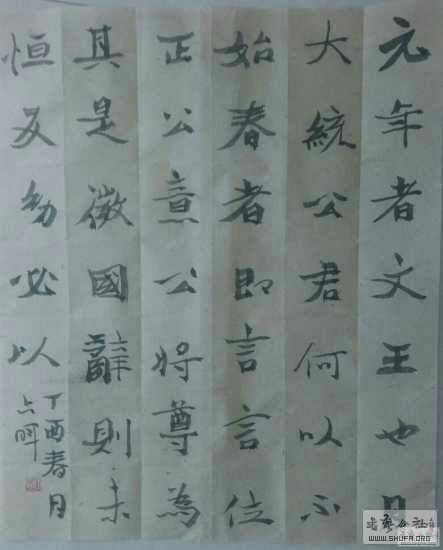 元年者文王也曰
大統公君何以不
始春者即言言位
正公意公将尊為
其是微國辭則未
恒反幼必以
丁酉春月
書藝公社
WWW.SHUFA.ORG